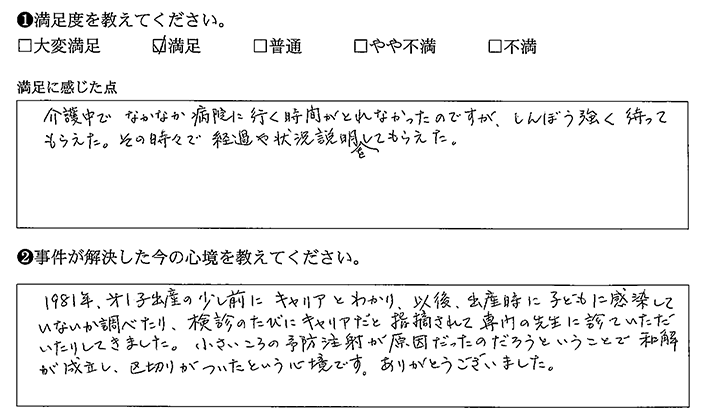 ❶満足度を教えてください。
□大変満足 ☑満足 □普通 □やや不満 □不満
満足に感じた点
介護中で なかなか病院に行く時間がとれなかったのですが、しんぼう強く 待って
もらえた。その時々で 経過や状況説明をしてもらえた。
❷事件が解決した今の心境を教えてください。
1981年、第1子出産の少し前に キャリアとわかり、以後、出産時に子どもに感染して
いないか調べたり、検診のたびにキャリアだと指摘されて専門の先生に診ていただ
いたりしてきました。小さいころの予防注射が原因だったのだろうということで 和解
が成立し、区切りがついたという心境です。ありがとうございました。